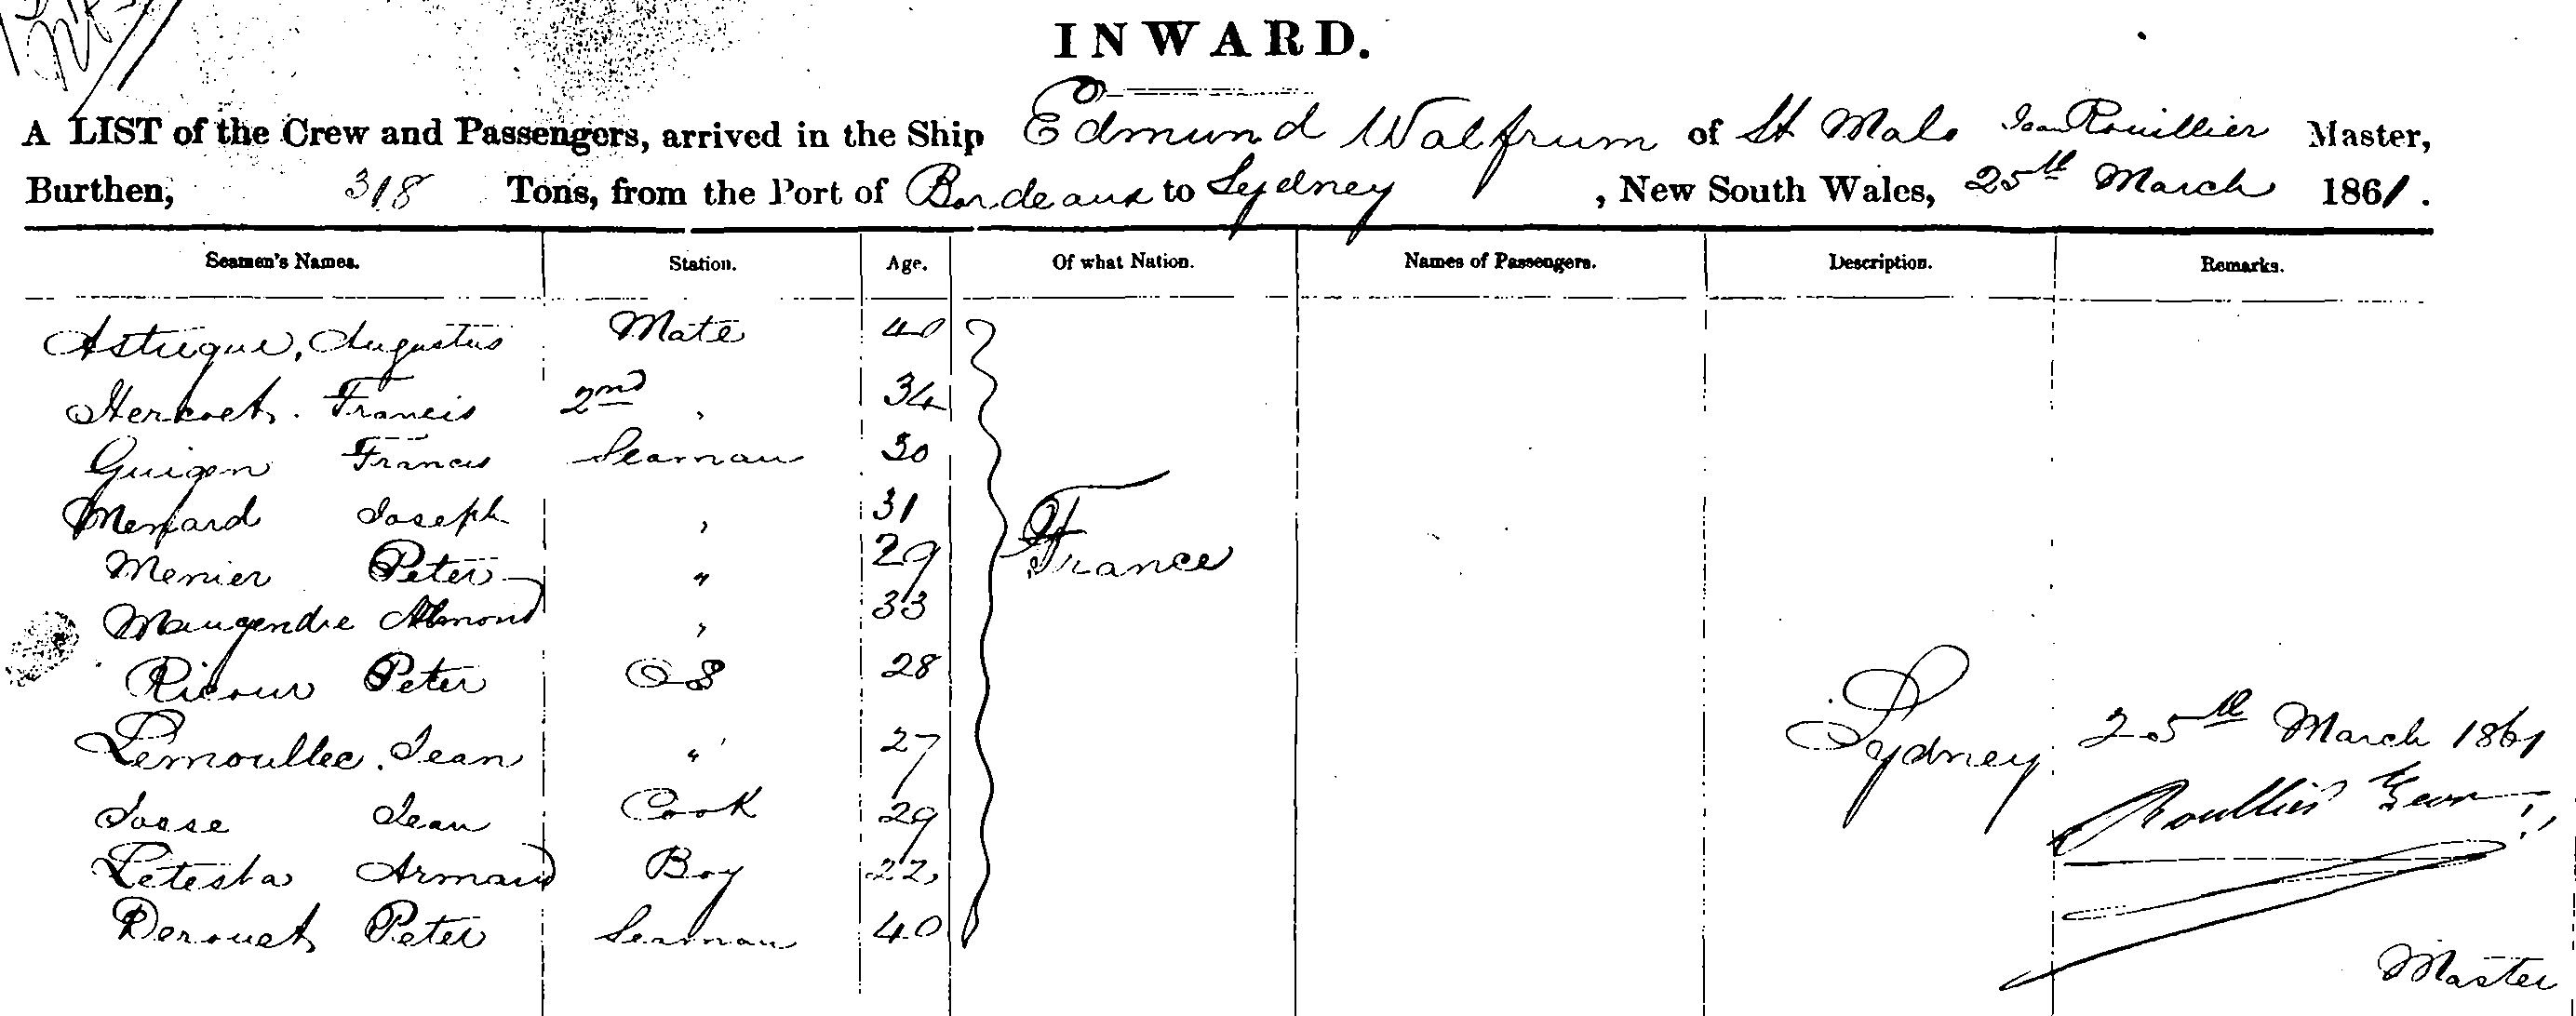 INWARD.
A LIST of the Crew and Passengers, arrived in the Ship Edmund Walfrum of St Malo Jean Rouillier Master,
Burthen, 318 Tons, from the Port of Bordeaux to Sydney, New South Wales, 25th March 1861.
Seamen's Names. Station. Age. Of what Nation. Names of Passengers. Description. Remarks.
Astuque, Augustus Mate 40
Hercoet. Francis 2nd " 34
Guigen Francis Seaman 30
Menard Joseph " 31
Menier Peter " 29
France
Maugendre Almond " 33
Ricour Peter OS 28
Lemoullec. Jean " 27
Sydney 25th March 1861
Josse Jean Cook 29
Rouillier Jean
Letesta Armand Boy 22
Derouet Peter Seaman 40
Master